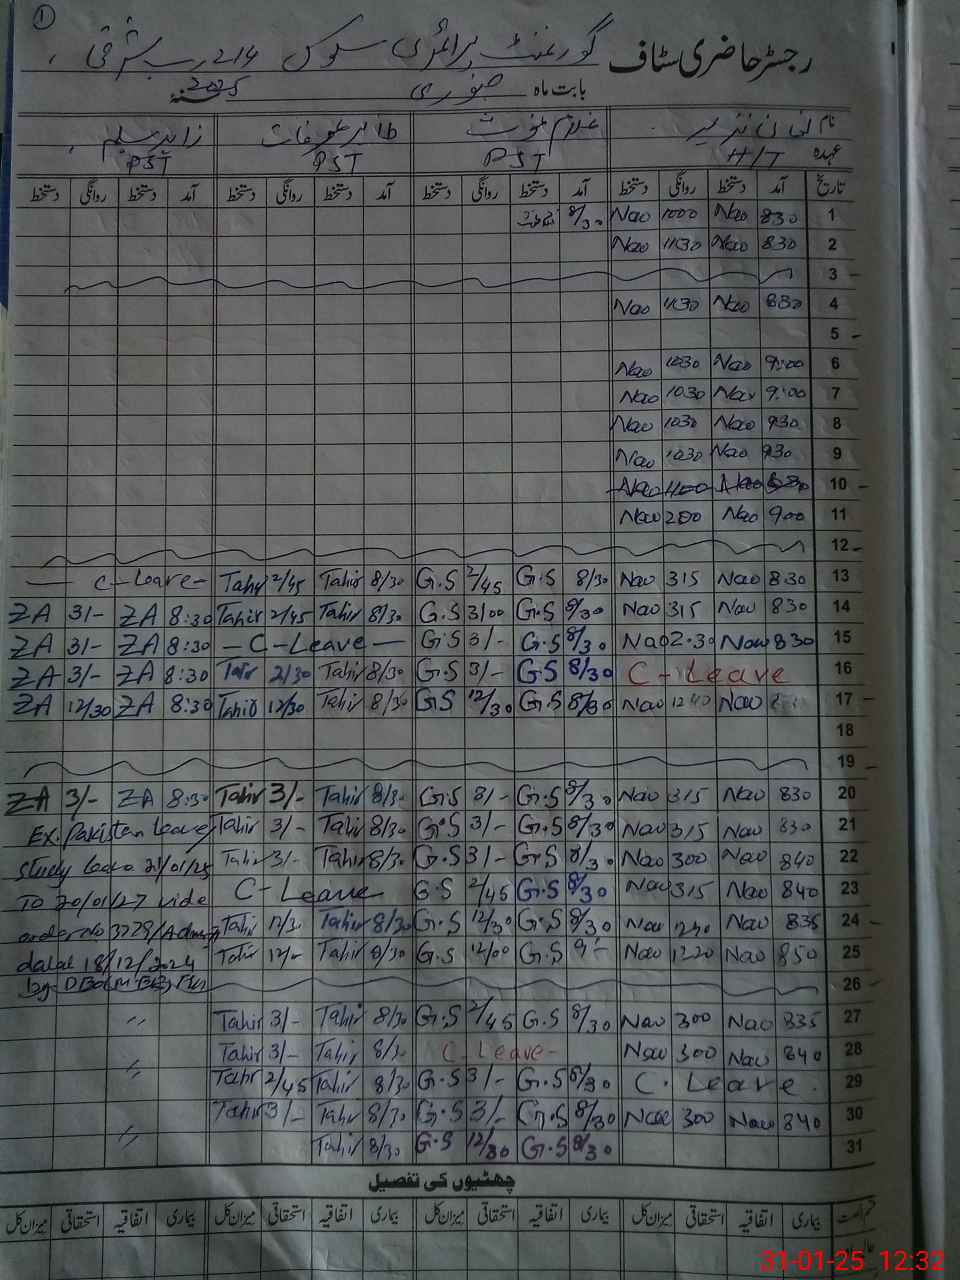 ①
رجسٹر حاضری سٹاف گورنمنٹ پرائمری سکول 214 ر ب شرقی
بابت ماہ جنوری 2025
نام غلام غوث زاہد سلیم
عہدہ H/T PST PST PST
تاریخ آمد دستخط روانگی دستخط آمد دستخط روانگی دستخط آمد دستخط روانگی دستخط آمد دستخط روانگی دستخط
1 830 Nao 1000 Nao 8/30
2 830 Nao 1130 Nao
3
4 830 Nao 1130 Nao
5
6 9:00 Nao 1030 Nao
7 9:00 Nao 1030 Nao
8 930 Nao 1030 Nao
9 930 Nao 1030 Nao
10 Nao 1100 Nao
11 900 Nao 200 Nao
12
13 830 Nao 315 Nao 8/30 G.S 2/45 G.S 8/30 Tahir 2/45 Tahir C-Leave
14 830 Nao 315 Nao 8/30 G.S 3/00 G.S 8/30 Tahir 2/45 Tahir 8:30 ZA 3/- ZA
15 830 Nao 2.30 Nao 8/30 G.S 3/- G.S C-Leave 8:30 ZA 3/- ZA
16 C-Leave 8/30 G.S 3/- G.S 8/30 Tahir 2/30 Tahir 8:30 ZA 3/- ZA
17 Nao 1240 Nao 8/30 G.S 12/30 GS 8/30 Tahir 12/30 Tahir 8:30 ZA 12/30 ZA
18
19
20 830 Nao 315 Nao 8/30 G.S 8/- G.S 8/30 Tahir 3/- Tahir 8:30 ZA 3/- ZA
21 830 Nao 315 Nao 8/30 G.S 3/- G.S 8/30 Tahir 3/- Tahir Ex. Pakistan Leave/
22 840 Nao 300 Nao 8/30 G.S 3/- G.S 8/30 Tahir 3/- Tahir Study Leave 21/01/25
23 840 Nao 315 Nao 8/30 G.S 2/45 G.S C-Leave To 20/01/27 vide
24 835 Nao 1230 Nao 8/30 G.S 12/30 G.S 8/30 Tahir 12/30 Tahir order No 3728/Admn
25 850 Nao 1220 Nao 9/- G.S 12/00 G.S 8/30 Tahir 12/- Tahir dated 18/12/2024
26 by
27 835 Nao 300 Nao 8/30 G.S 2/45 G.S 8/30 Tahir 3/- Tahir 〃
28 840 Nao 300 Nao C-Leave- 8/30 Tahir 3/- Tahir 〃
29 C. Leave. 8/30 G.S 3/- G.S 8/30 Tahir 2/45 Tahir 〃
30 840 Nao 300 Nao 8/30 G.S 3/- G.S 8/30 Tahir 3/- Tahir
31 8/30 G.S 12/30 G.S 8/30 Tahir 〃
چھٹیوں کی تفصیل
بیماری اتفاقیہ استحقاقی میزان کل بیماری اتفاقیہ استحقاقی میزان کل بیماری اتفاقیہ استحقاقی میزان کل بیماری اتفاقیہ استحقاقی میزان کل
31-01-25 12:32